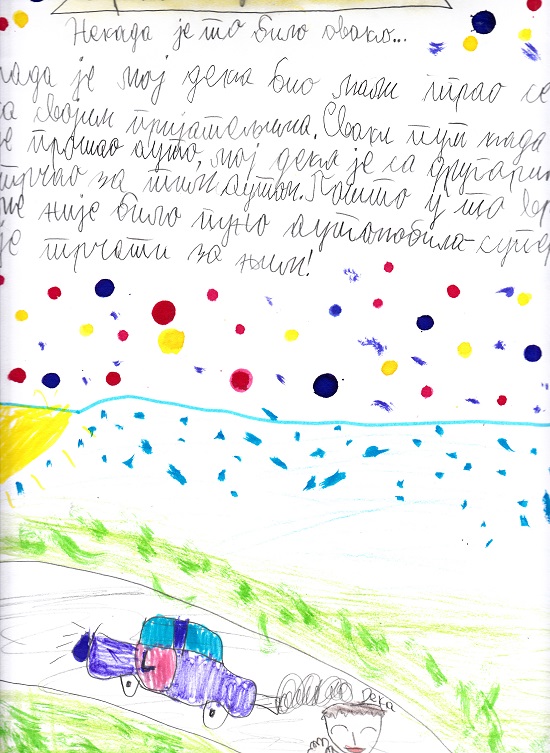 Некада је то било овако...
када је мој дека био мали играо се
са својим пријатељима. Сваки пут када
је прошао ауто, мој дека је са другарима
трчао за тим аутом. Пошто у то вр
није било пуно аутомобила-супер
је трчати за њим!
дека